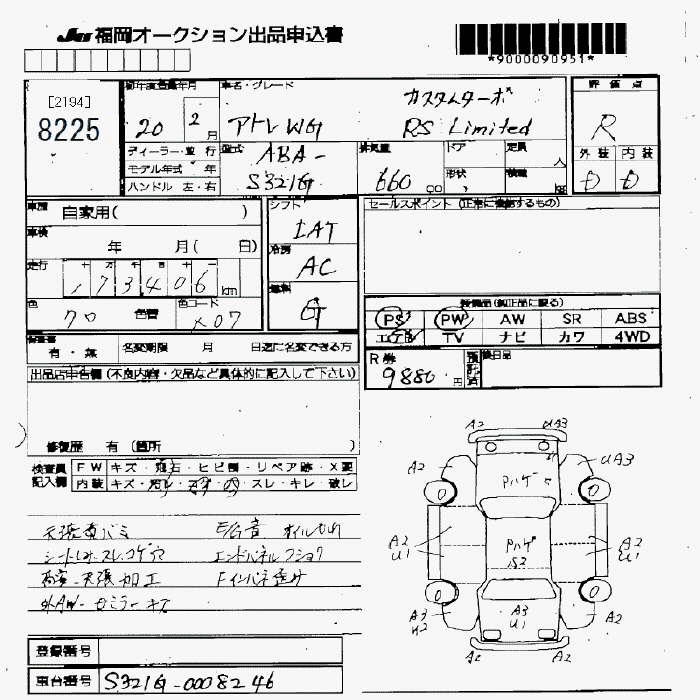 JU福岡オークション出品申込書
*9000090951*
[2194]
8225
初年度登録年月
20 2月
車名・グレード
カスタムターボ
アトレWG RS Limited
評価点
R
外装 内装
D D
ディーラー・並行
モデル年式 年
ハンドル 左・右
型式 ABA-
S321G
排気量
660 cc
ドア
形状
定員 人
積載 kg
車歴 自家用( )
車検 年 月( 日)
走行 十 万 千 百 十 一
173406 km
色 クロ 色替 色コード X07
シフト
IAT
冷房
AC
燃料
G
セールスポイント(正常に機能するもの)
装備品(純正品に限る)
PS PW AW SR ABS
エアB TV ナビ カワ 4WD
保証書 有・無 名変期限 月 日迄に名変できる方
R券
9880円
預託済
後日品
出品店申告欄(不良内容・欠品など具体的に記入して下さい)
修復歴 有(箇所 )
検査員記入欄
FW キズ・飛石・ヒビ割・リペア跡・X要
内装 キズ・汚レ・コゲ・穴・スレ・キレ・破レ
E/G音 オイルもれ
シート
天張加工
外AW
ミラーキズ
A2 UA3
A2 UA3
Pハゲ
A2 U1
Pハゲ
S2
A2 U1
A3 U2
A3 U1
A2
A2 A2
0 0
0 0
登録番号
車台番号 S321G-0008246